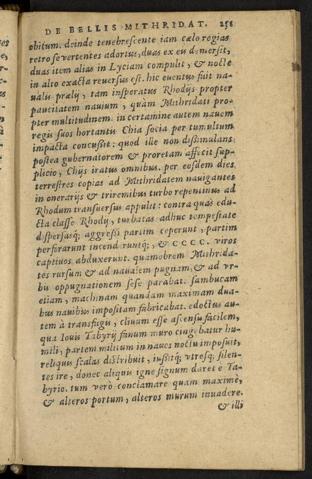 DE BELLIS MITHRIDAT. 258
obitum. deinde tenebrescente iam cælo regias
retro se vertentes adortus, duas ex eu demersit,
duas item alias in Lyciam compulit, & nocte
in alto exacta reuersus est. hic euentus fuit na-
ualis prælij, tam insperatus Rhodijs propter
paucitatem nauium, quàm Mithridati pro-
pter multitudinem. in certamine autem nauem
regis suos hortantis Chia socia per tumultum
impacta concussit: quod ille non dissimulans,
postea gubernatorem & proretam affecit sup-
plicio, Chijs iratus omnibus. per eosdem dies
terrestres copias ad Mithridatem nauigantes
in onerarijs & triremibus turbo repentinus ad
Rhodum transuersus appulit: contra quas edu-
cta classe Rhodij, turbatas adhuc tempestate
dispersasq; aggressi partim ceperunt, partim
perfrarunt incenderuntq;, & CCCC. viros
captiuos abduxerunt. quamobrem Mithrida-
tes rursum & ad naualem pugnam, & ad vr-
bis oppugnationem sese parabat. sambucam
etiam, machinam quandam maximam dua-
bus nauibus impositam fabricabat. edoctus au-
tem à transfugis, cliuum esse ascensu facilem,
qua Iouis Tabyrij fanum muro cingebatur hu-
mili, partem militum in naues noctu imposuit,
reliquis scalas distribuit, iussitq; vtrosq; silen-
tes ire, donec aliquis igne signum daret e Ta-
byrio. tum verò conclamare quàm maximè,
& alteros portum, alteros murum inuadere.
& illi